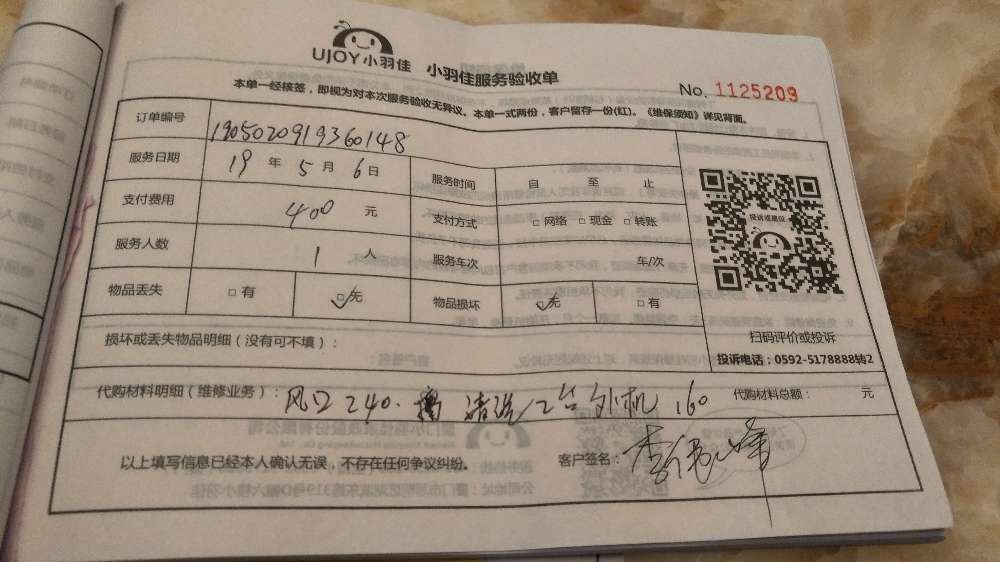 UJOY小羽佳 小羽佳服务验收单
No. 1125209
本单一经核签，即视为对本次服务验收无异议。本单一式两份，客户留存一份(红)。《维保须知》详见背面。
订单编号 1905020919360148
服务日期 19 年 5 月 6 日 服务时间 自 至 止
支付费用 400 元 支付方式 □ 网络 □ 现金 □ 转账
服务人数 1 人 服务车次 车/次
物品丢失 □ 有 ☑无 物品损坏 ☑无 □ 有
投诉或建议
扫码评价或投诉
损坏或丢失物品明细（没有可不填）：
投诉电话：0592-5178888转2
代购材料明细（维修业务）： 风口240. 清洗/2台外机 160 代购材料总额： 元
以上填写信息已经本人确认无误，不存在任何争议纠纷。 客户签名：